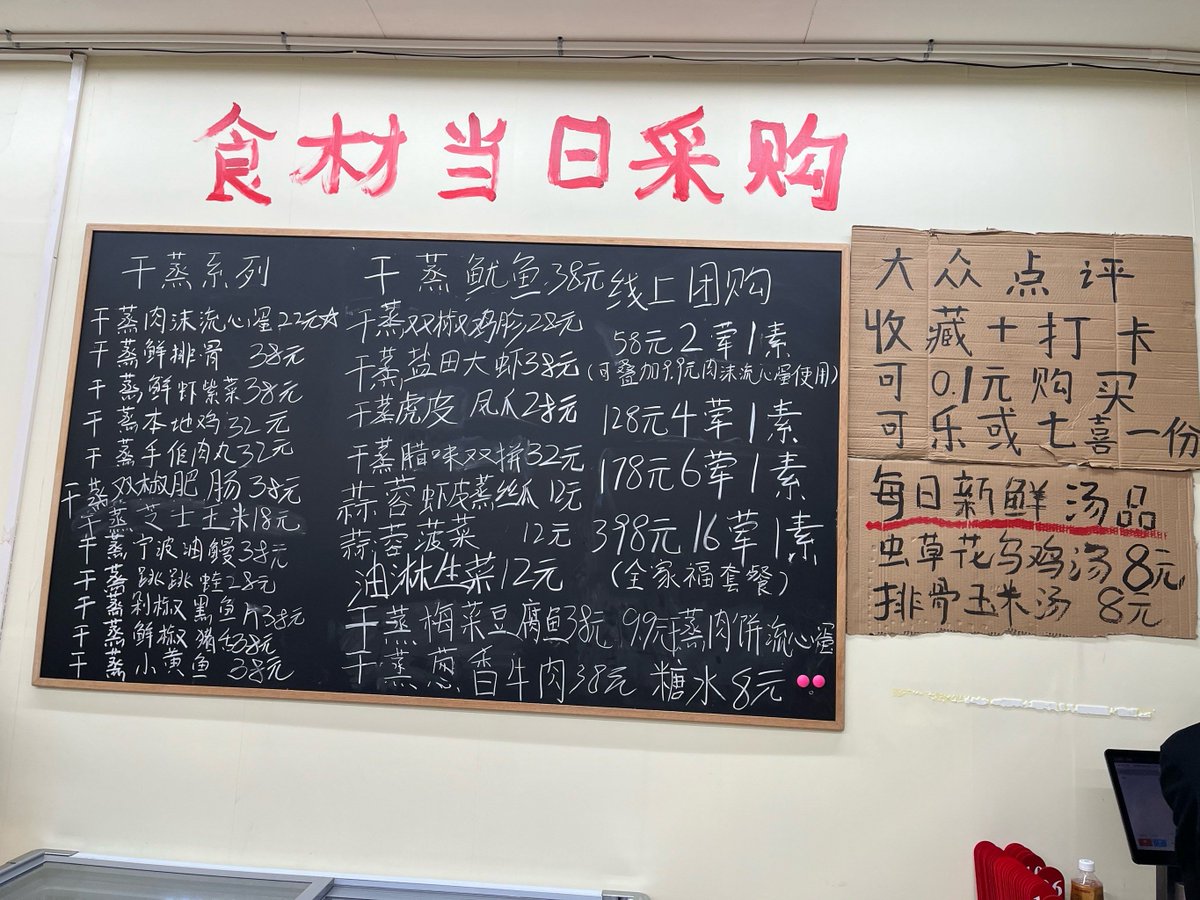 食材当日采购
干蒸系列
干蒸肉沫流心蛋22元☆
干蒸鲜排骨 38元
干蒸鲜虾紫菜38元
干蒸本地鸡32元
干蒸手作肉丸32元
干蒸双椒肥肠38元
干蒸芝士玉米18元
干蒸宁波油鳗38元
干蒸跳跳蛙28元
干蒸剁椒黑鱼片38元
干蒸鲜椒猪舌38元
干蒸小黄鱼 38元
干蒸鱿鱼38元
干蒸双椒鸡胗28元
干蒸盐田大虾38元
干蒸虎皮凤爪28元
干蒸腊味双拼32元
蒜蓉虾皮蒸丝瓜12元
蒜蓉菠菜 12元
油淋生菜12元
干蒸梅菜豆腐鱼38元
干蒸葱香牛肉38元
线上团购
58元2荤1素
(可叠加9.9元肉沫流心蛋使用)
128元4荤1素
178元6荤1素
398元16荤1素
(全家福套餐)
19.9元蒸肉饼流心蛋
糖水8元
大众点评
收藏+打卡
可0.1元购买
可乐或七喜一份
每日新鲜汤品
虫草花乌鸡汤8元
排骨玉米汤 8元